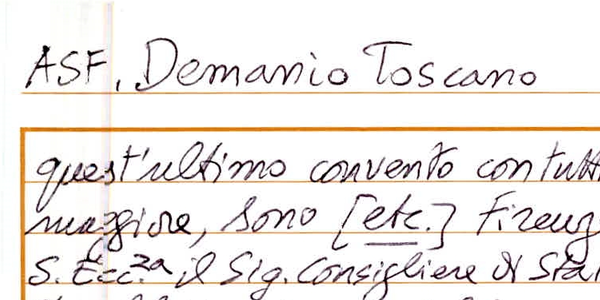 ASF, Demanio Toscano
quest'ultimo convento con tutti
maggiore, sono [etc.] Firenz
S. Ecc.za il Sig. Consigliere di Sta